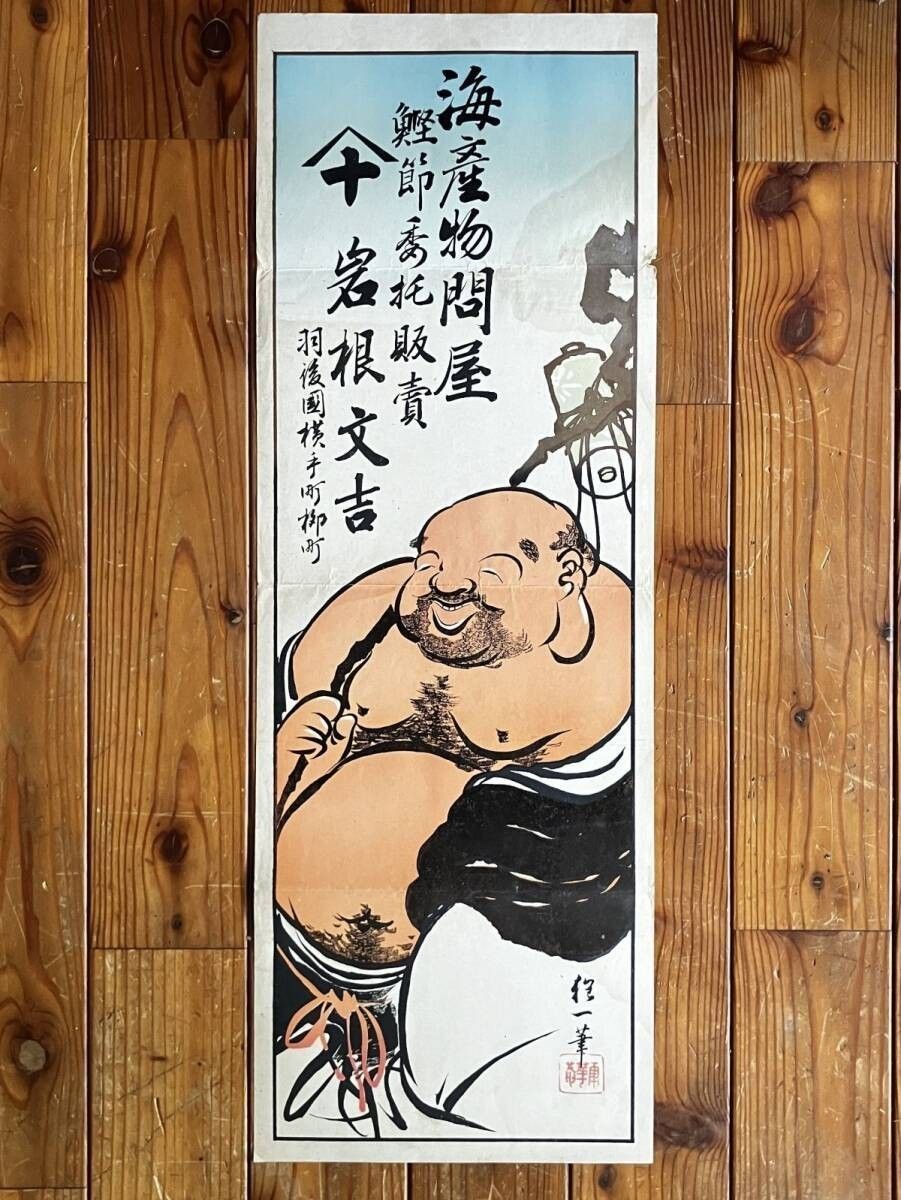 海產物問屋
鰹節委托販賣
十 岩根文吉
羽後國橫手町柳町
一筆